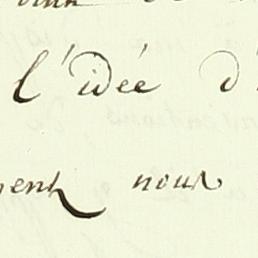 l'idée d'
ment nous